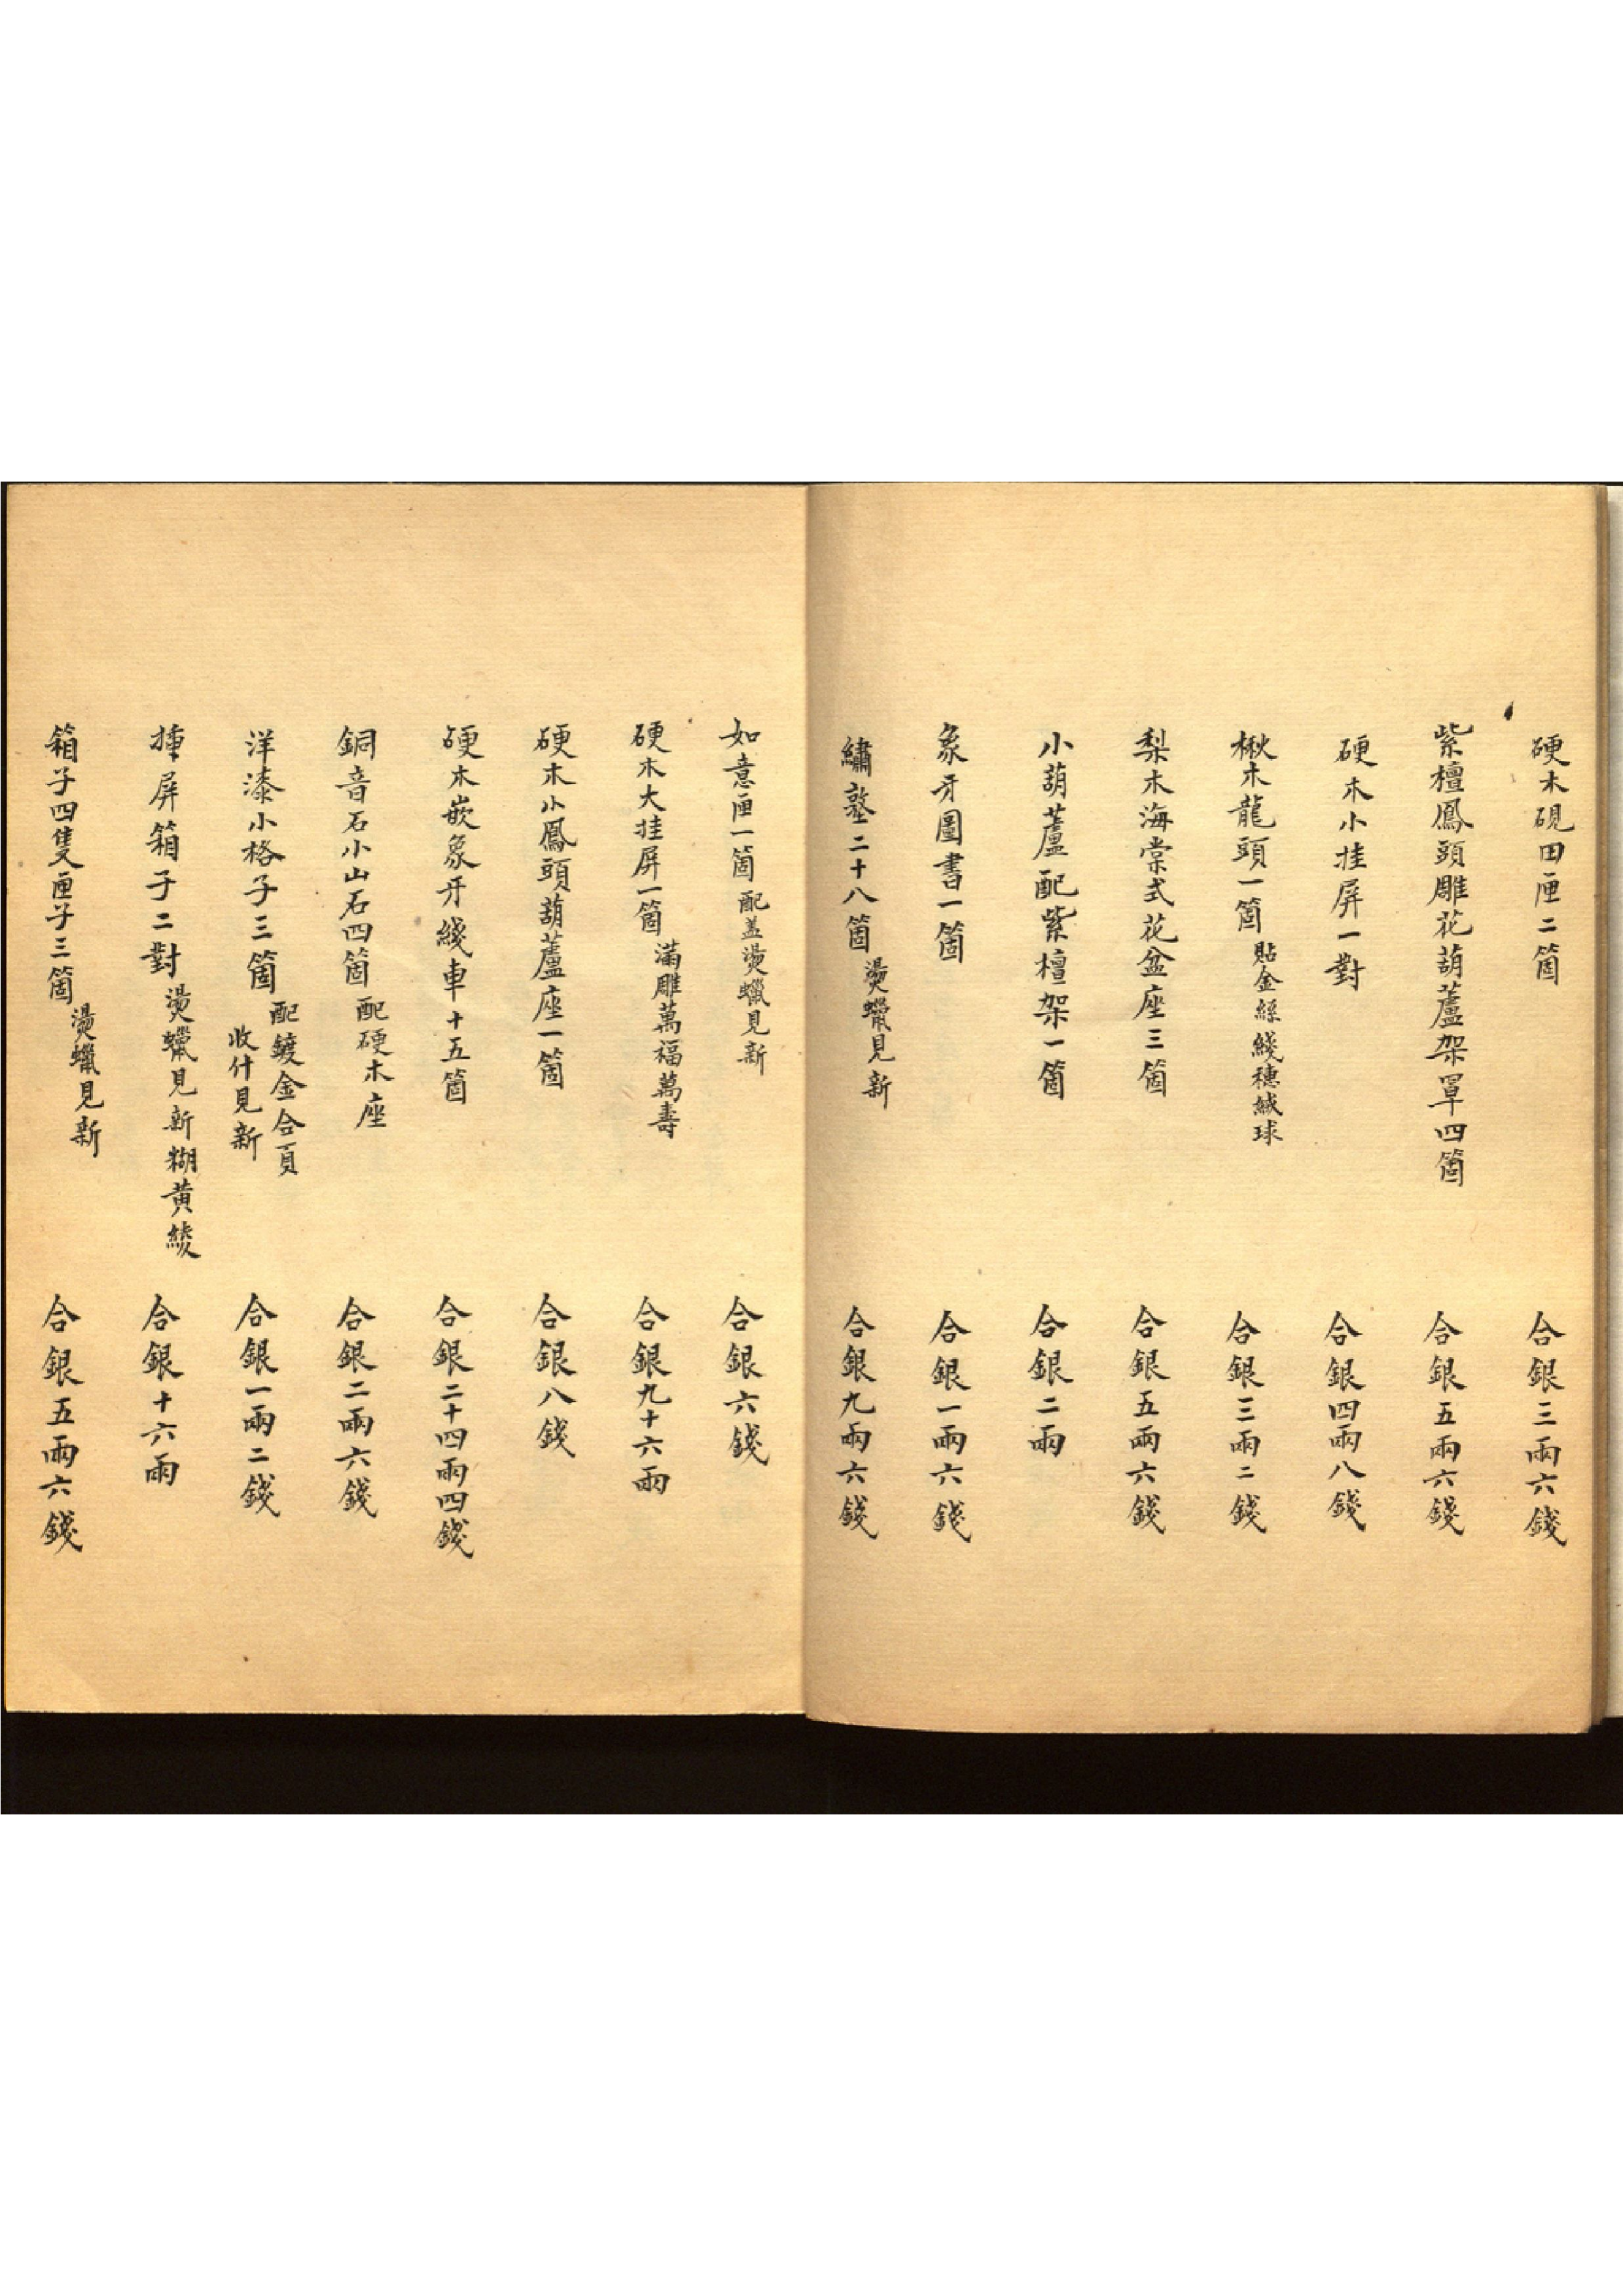 硬木硯田匣二箇 合銀三兩六錢
紫檀鳳頭雕花葫蘆架罩四箇 合銀五兩六錢
硬木小挂屏一對 合銀四兩八錢
楸木龍頭一箇 貼金絲綫穗絨球 合銀三兩二錢
梨木海棠式花盆座三箇 合銀五兩六錢
小葫蘆配紫檀架一箇 合銀二兩
象牙圖書一箇 合銀一兩六錢
繡墪二十八箇 燙蠟見新 合銀九兩六錢
如意匣一箇 配盖燙蠟見新 合銀六錢
硬木大挂屏一箇 滿雕萬福萬壽 合銀九十六兩
硬木小鳳頭葫蘆座一箇 合銀八錢
硬木嵌象牙綫車十五箇 合銀二十四兩四錢
銅音石小山石四箇 配硬木座 合銀二兩六錢
洋漆小格子三箇 配鍍金合頁 收什見新 合銀一兩二錢
挿屏箱子二對 燙蠟見新糊黄綾 合銀十六兩
箱子四隻匣子三箇 燙蠟見新 合銀五兩六錢